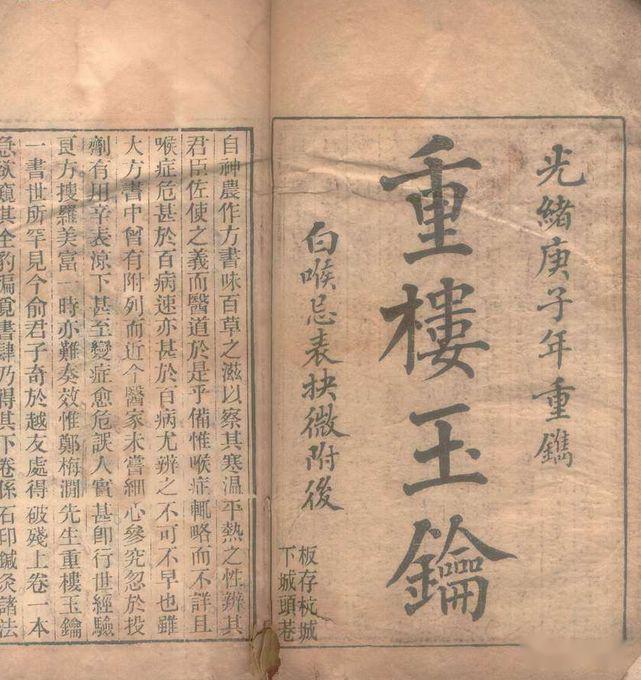 光緒庚子年重鐫
重樓玉鑰
白喉忌表抉微附後
板存杭城
下城頭巷
自神農作方書味百草之滋以察其寒溫平熱之性辨其
君臣佐使之義而醫道於是乎備惟喉症輒略而不詳且
喉症危甚於百病速亦甚於百病尤辨之不可不早也雖
大方書中曾有附列而近今醫家未嘗細心參究忽於投
劑有用辛表涼下甚至變症愈危誤人實甚卽行世經驗
良方搜羅美富一時亦難奏效惟鄭梅澗先生重樓玉鑰
一書世所罕見今俞君子奇於越友處得破殘上卷一本
急欲窺其全豹徧覓書肆乃得其下卷係石印鍼灸諸法